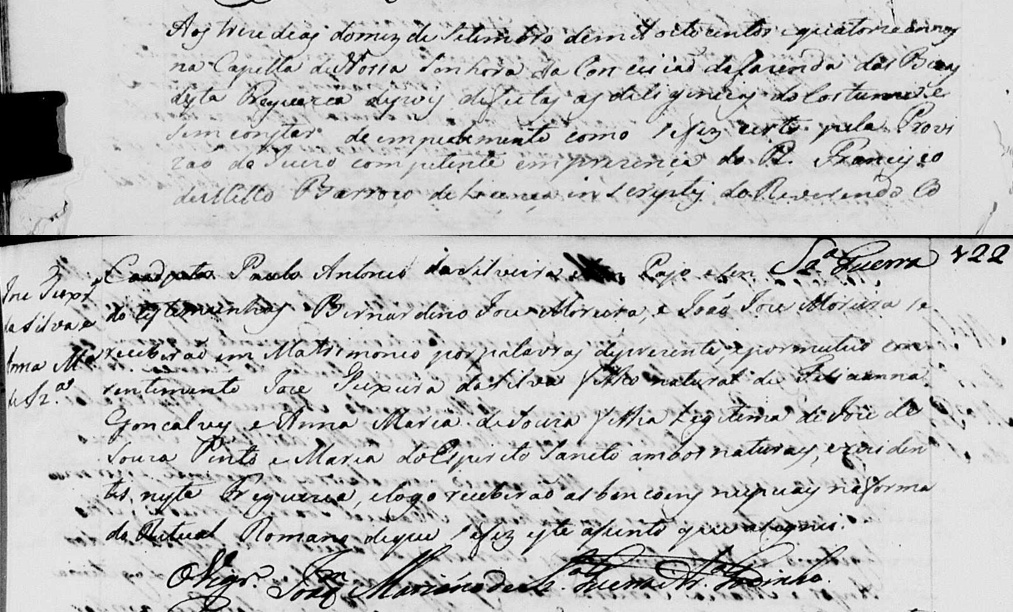 Aos treze dias do mez de Setembro de mil oitocentos e quatorze annos
na Capella de Nossa Senhora da Conceicaõ da fazenda das
desta Freguezia depois de feitas as deligencias do costume e
sem constar de empedimento como se fez certo pela Provi
zaõ do Juizo competente em prezença do P. Francisco
de Mello Barrozo de Licença in scriptis do Reverendo Co
Paulo Antonio da Silveira Sz.ª Guerra 122
do testemunhas Bernardino Joze Moreira, e Joaõ Joze Moreira se
receberaõ em Matrimonio por palavras de prezente, e por mutuo con
sentimento Joze Teixeira da Silva filho natural de Felicianna
Goncalves e Anna Maria de Souza filha Legitima de Joze de
Souza Pinto e Maria do Espirito Sancto ambos naturaes, e residen
tes nesta Freguezia, e logo receberaõ as bencoens nupciaes na forma
do Ritual Romano de que se fez este asento que asignei.
O Vigr.º Joaq.m Mariano de Sz.ª Guerra
Joze Teixr.ª
da Silva e
Anna M.ª
de Sz.ª